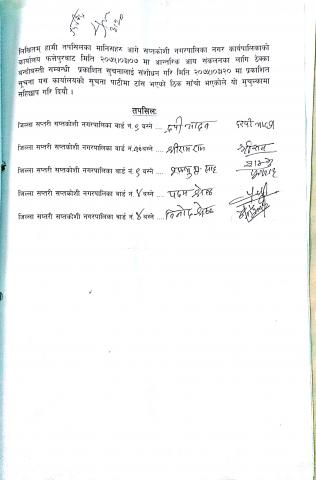 लिखितम् हामी तपसिलका मानिसहरु आगे सप्तकोशी नगरपालिका नगर कार्यपालिकाको
कार्यालय फत्तेपुरबाट मिति २०७५।०३।०७ मा आन्तरिक आय संकलनका लागि ठेक्का
बन्दोबस्ती सम्बन्धी प्रकाशित सूचनालाई संशोधन गरि मिति २०७५।०३।२० मा प्रकाशित
सूचना यस कार्यालयको सूचना पाटीमा टाँस भएको ठिक साँचो भएकोले यो मुचुल्कामा
सहिछाप गरि दियौं ।
तपसिल
जिल्ला सप्तरी सप्तकोशी नगरपालिका वार्ड नं. ९ बस्ने ... यादव
जिल्ला सप्तरी सप्तकोशी नगरपालिका वार्ड नं. बस्ने ... श्रीराम राम
जिल्ला सप्तरी सप्तकोशी नगरपालिका वार्ड नं. ९ बस्ने ... साह
जिल्ला सप्तरी सप्तकोशी नगरपालिका वार्ड नं. ४ बस्ने ... पदम श्रेष्ठ
जिल्ला सप्तरी सप्तकोशी नगरपालिका वार्ड नं. ४ बस्ने ... विनोद श्रेष्ठ